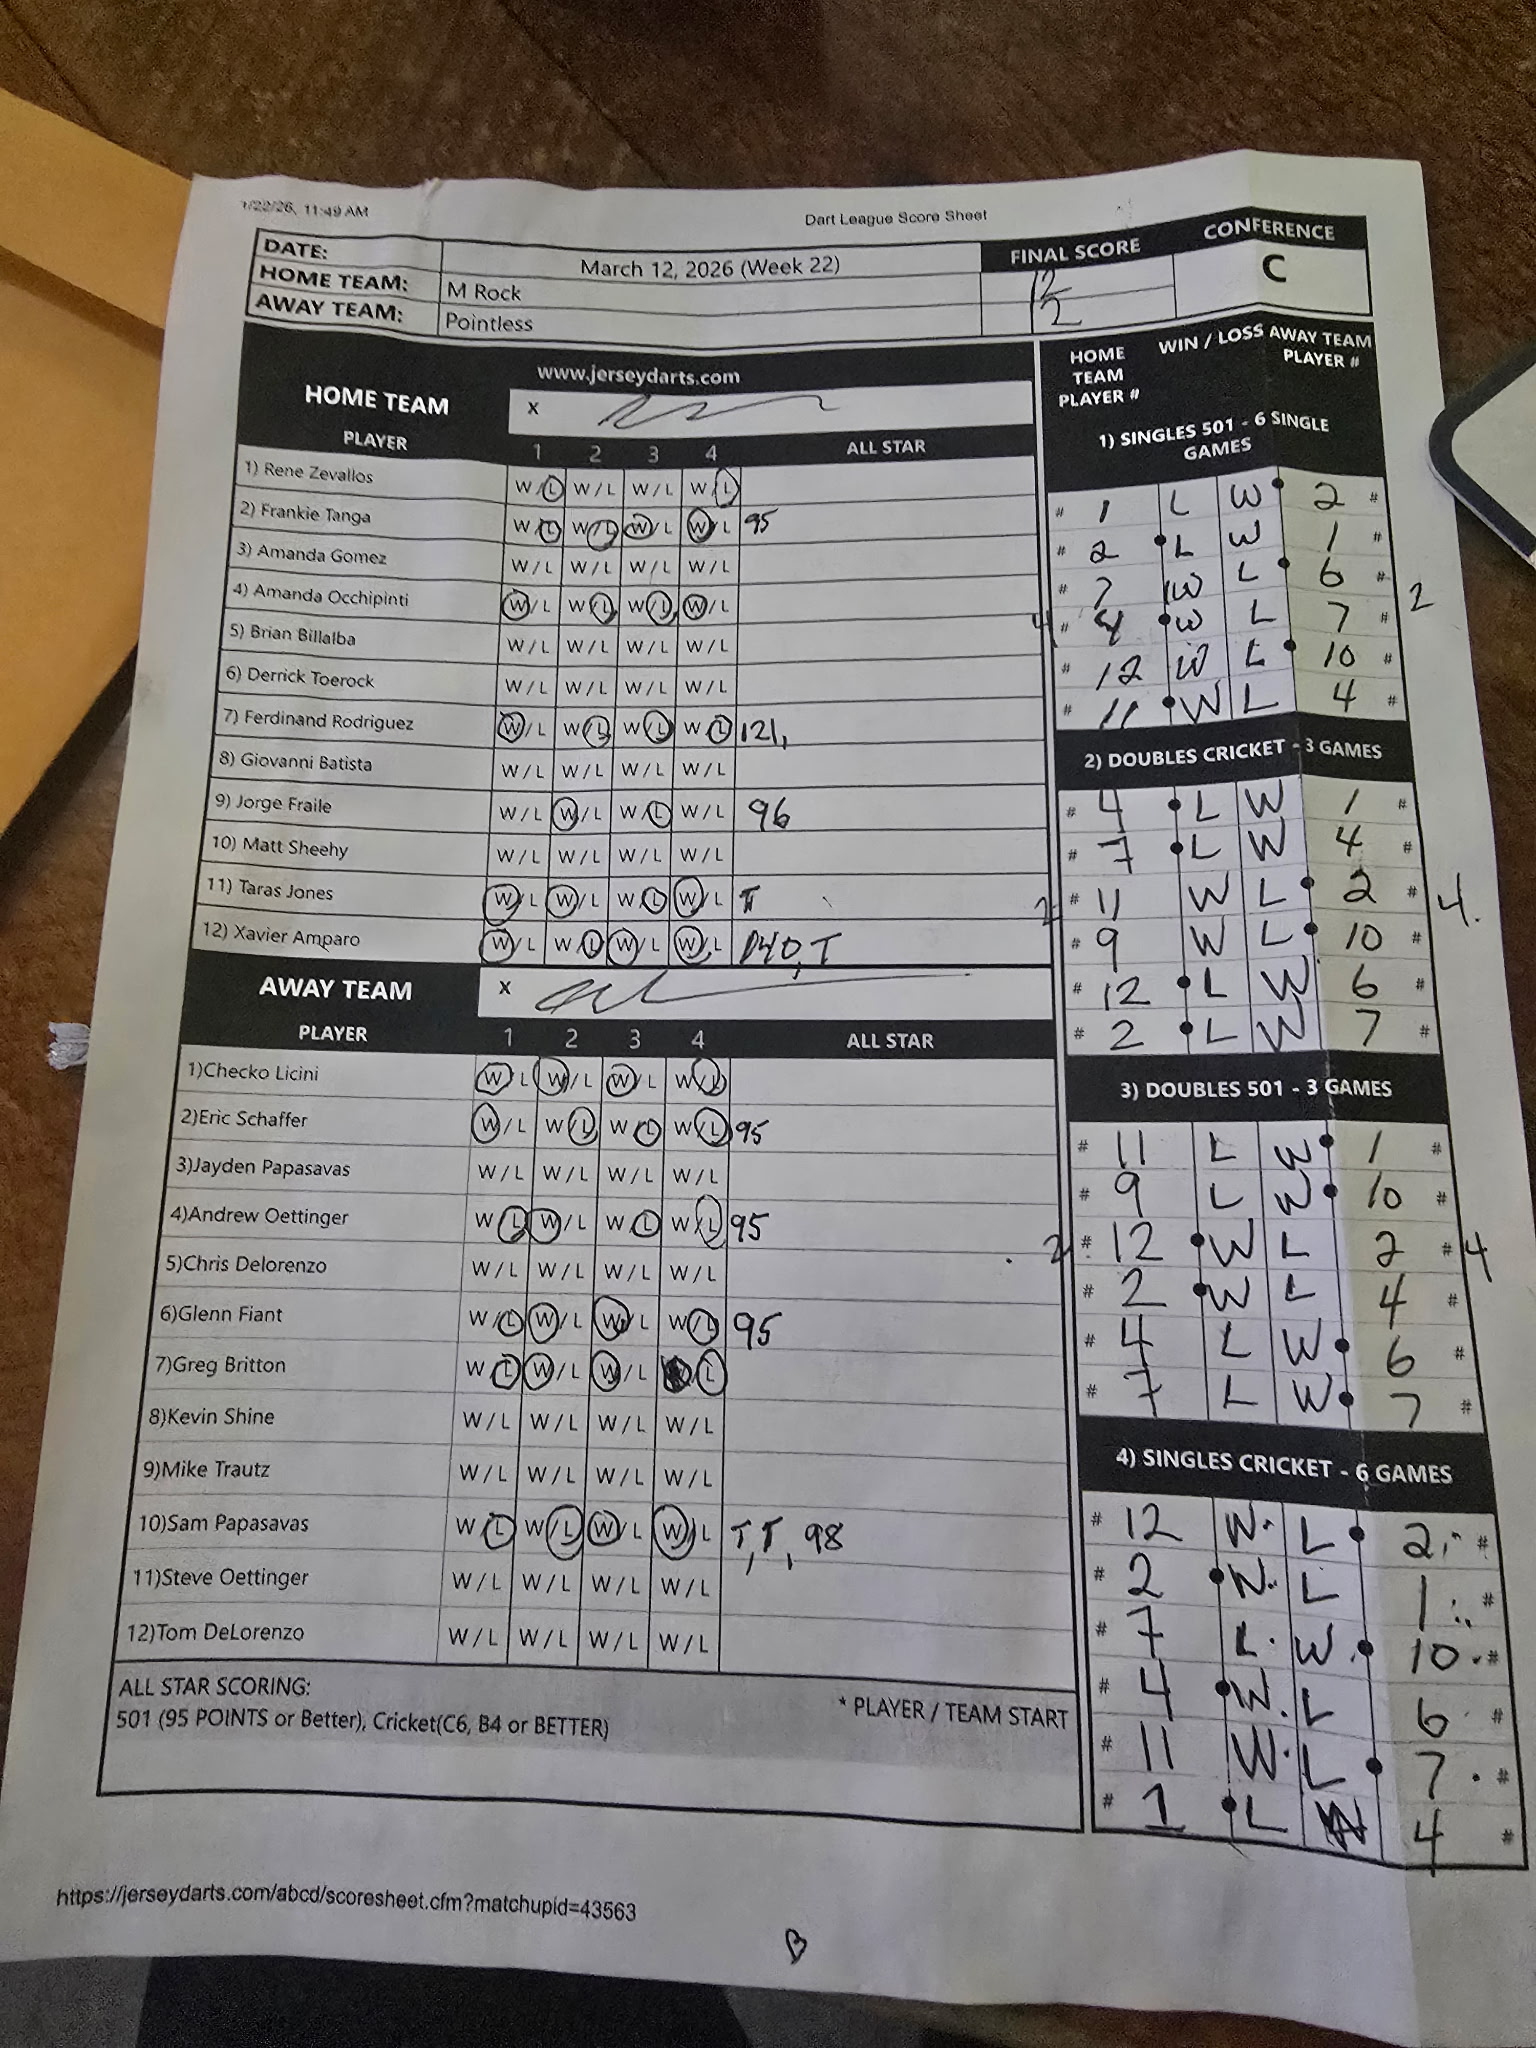 1/22/26, 11:49 AM Dart League Score Sheet
DATE: March 12, 2026 (Week 22) FINAL SCORE CONFERENCE
HOME TEAM: M Rock 12 C
AWAY TEAM: Pointless 12
www.jerseydarts.com
HOME TEAM X
PLAYER 1 2 3 4 ALL STAR
1) Rene Zevallos W/L W/L W/L W/L
2) Frankie Tanga W/L W/L W/L W/L 95
3) Amanda Gomez W/L W/L W/L W/L
4) Amanda Occhipinti W/L W/L W/L W/L
5) Brian Billalba W/L W/L W/L W/L
6) Derrick Toerock W/L W/L W/L W/L
7) Ferdinand Rodriguez W/L W/L W/L W/L 121,
8) Giovanni Batista W/L W/L W/L W/L
9) Jorge Fraile W/L W/L W/L W/L 96
10) Matt Sheehy W/L W/L W/L W/L
11) Taras Jones W/L W/L W/L W/L T
12) Xavier Amparo W/L W/L W/L W/L 140, T
AWAY TEAM X
PLAYER 1 2 3 4 ALL STAR
1)Checko Licini W/L W/L W/L W/L
2)Eric Schaffer W/L W/L W/L W/L 95
3)Jayden Papasavas W/L W/L W/L W/L
4)Andrew Oettinger W/L W/L W/L W/L 95
5)Chris Delorenzo W/L W/L W/L W/L
6)Glenn Fiant W/L W/L W/L W/L 95
7)Greg Britton W/L W/L W/L L
8)Kevin Shine W/L W/L W/L W/L
9)Mike Trautz W/L W/L W/L W/L
10)Sam Papasavas W/L W/L W/L W/L T, T, 98
11)Steve Oettinger W/L W/L W/L W/L
12)Tom DeLorenzo W/L W/L W/L W/L
ALL STAR SCORING: * PLAYER / TEAM START
501 (95 POINTS or Better), Cricket(C6, B4 or BETTER)
HOME TEAM PLAYER # WIN / LOSS AWAY TEAM PLAYER #
1) SINGLES 501 - 6 SINGLE GAMES
# 1 L W 2 #
# 2 L W 1 #
# 7 W L 6 #
4 # 4 W L 7 # 2
# 12 W L 10 #
# 11 W L 4 #
2) DOUBLES CRICKET - 3 GAMES
# 4 L W 1 #
# 7 L W 4 #
2 # 11 W L 2 # 4.
# 9 W L 10 #
# 12 L W 6 #
# 2 L W 7 #
3) DOUBLES 501 - 3 GAMES
# 11 L W 1 #
# 9 L W 10 #
2 # 12 W L 2 # 4
# 2 W L 4 #
# 4 L W 6 #
# 7 L W 7 #
4) SINGLES CRICKET - 6 GAMES
# 12 W L 2 #
# 2 W L 1 #
# 7 L W 10 #
# 4 W L 6 #
# 11 W L 7 #
# 1 L 4 #
https://jerseydarts.com/abcd/scoresheet.cfm?matchupid=43563
B